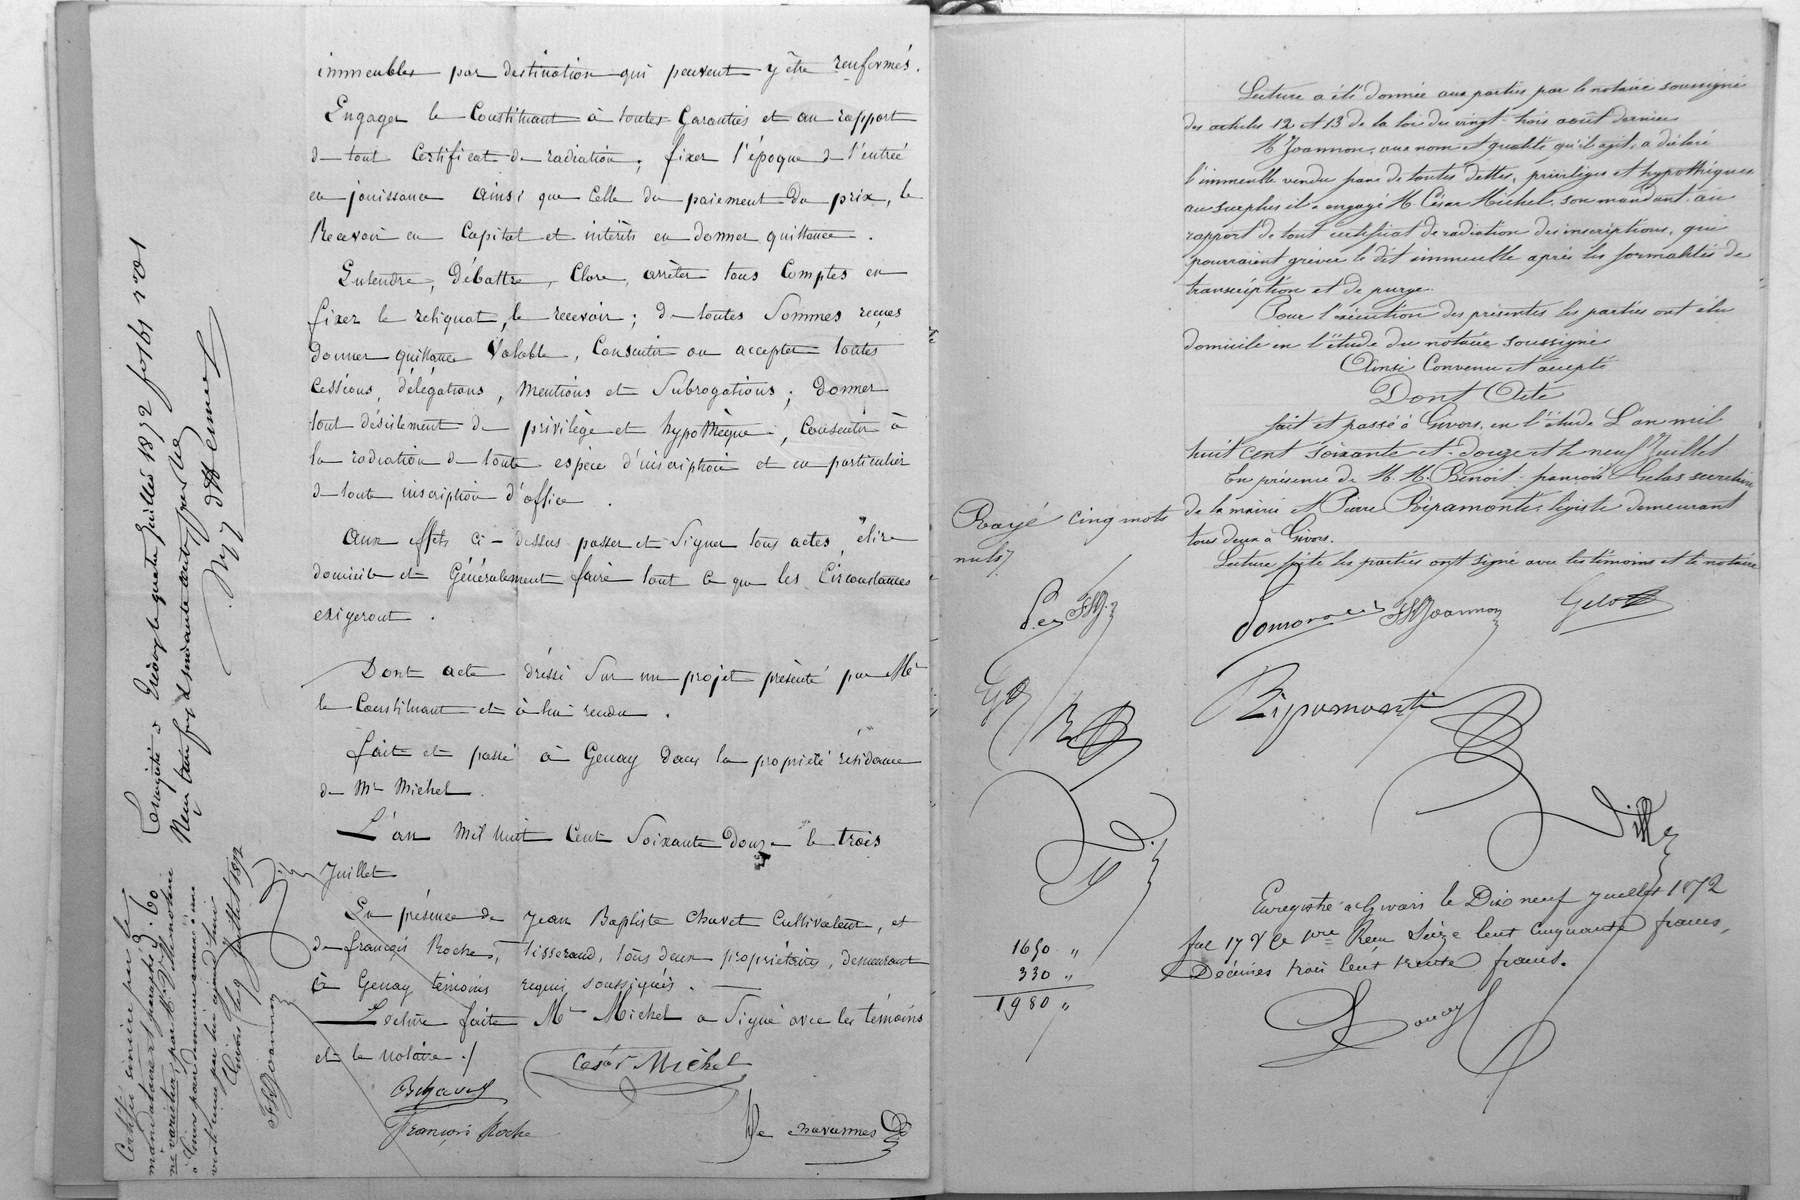 immeubles par destination qui peuvent y être renfermés.
Engager le Constituant à toutes Garanties et au rapport
de tout Certificat de radiation, fixer l'époque de l'entrée
en jouissance ainsi que Celle du paiement du prix, le
Recevoir en Capital et intérêts en donner quittance.
Entendre, Débattre, Clore, arrêter tous Comptes en
fixer le reliquat, le recevoir; de toutes Sommes reçues
donner quittance Valable, Consentir ou accepter toutes
Cessions, délégations, Mentions et Subrogations; Donner
tout désistement de privilège et hypothèque, Consentir à
la radiation de toute espèce d'inscription et en particulier
de toute inscription d'office.
Aux effets Ci-dessus passer et Signer tous actes, élire
domicile et Généralement faire tout Ce que les Circonstances
exigeront.
Dont acte dressé Sur un projet présenté par Mr
le Constituant et à lui rendu.
fait et passé à Genay dans la propriété résidence
de Mr Michel.
L'an Mil huit Cent Soixante Douze le trois
Juillet
En présence de Jean Baptiste Chavet Cultivateur, et
de françois Roche, tisserand, tous deux propriétaires, demeurant
à Genay témoins requis soussignés.
Lecture faite Mr Michel a Signé avec les témoins
et le notaire ./
César Michel
B Chavet
François Roche
De Chavannes
Certifié sincère par le
mandataire et paraphé
ne varietur par Me Ville notaire
à Givors pour demeurer annexé à une
vente reçue par lui aujourd'hui
Givors le 9 Juillet 1872
F Joannon
3.60
Enregistré à Trévoux le quatre Juillet 1872 fo 161 ro c 1
Reçu trois francs soixante centimes
Rayé cinq mots
nuls
1650 "
330 "
1980 "
Lecture a été donnée aux parties par le notaire soussigné
des articles 12 et 13 de la loi du vingt trois août dernier
M. Joannon, aux nom et qualité qu'il agit, a déclaré
l'immeuble vendu franc de toutes dettes, privilèges et hypothèques
au surplus il a engagé M. César Michel, son mandant, au
rapport de tout certificat de radiation des inscriptions, qui
pourraient grever le dit immeuble après les formalités de
transcription et de purge.
Pour l'exécution des présentes les parties ont élu
domicile en l'étude du notaire soussigné
Ainsi Convenu et accepté
Dont Acte
fait et passé à Givors, en l'étude L'an mil
huit cent soixante et douze et le neuf Juillet
En présence de M. M. Benoit françois Gelas secrétaire
de la mairie et Pierre Ripamonte, légiste demeurant
tous deux à Givors.
Lecture faite les parties ont signé avec les témoins et le notaire
F Joannon
Gelas
Ripamonti
Ville
Enregistré à Givors le Dix neuf Juillet 1872
fol 17 Vo Ce 1ere Reçu Seize Cent Cinquante francs,
Décimes trois Cent trente francs.